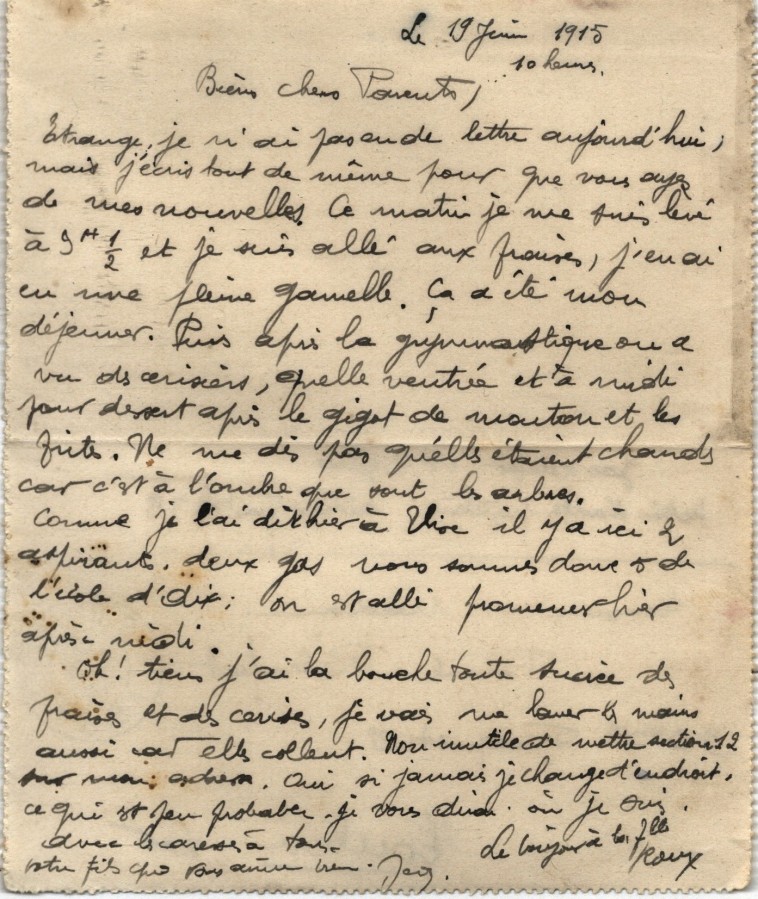 Le 19 Juin 1915
10 heures.
Biens chers Parents,
Etrange, je n'ai pas eu de lettre aujourd'hui,
mais j'écris tout de même pour que vous ayez
de mes nouvelles. Ce matin je me suis levé
à 5 H 1/2 et je suis allé aux fraises, j'en ai
eu une pleine gamelle. Ça a été mon
déjeuner. Puis après la gymnastique on a
vu des cerisiers, quelle ventrée et à midi
pour dessert après le gigot de mouton et les
frites. Ne me dis pas qu'elles étaient chauds
car c'est à l'ombre que sont les arbres.
Comme je l'ai dit hier à il y a ici 2
aspirants. deux gas nous sommes donc de
l'école d'; on est allé promener hier
après-midi.
Oh! tiens j'ai la bouche toute sucrée des
fraises et des cerises, je vais me laver les mains
aussi car elles collent. Non inutile de mettre section 12
sur mon adresse. Oui si jamais je change d'endroit,
ce qui est peu probable. je vous dirai où je suis.
avec les caresses à tous.
Le bonjour à la flle
Roux
votre fils qui vous aime bien.